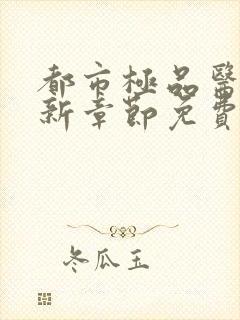 都市極品醫
新章節免費
冬瓜玉